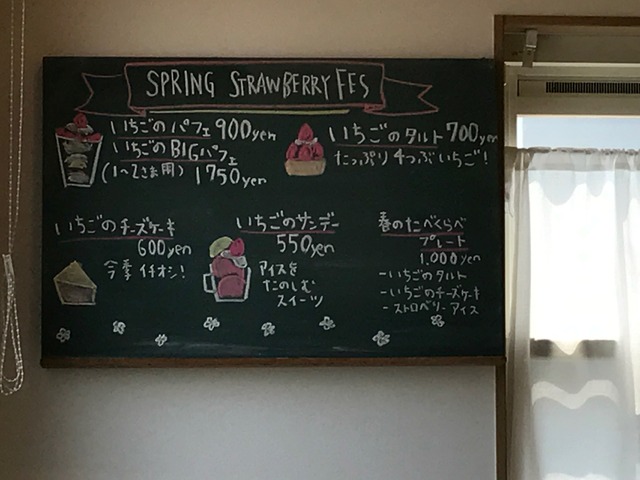 SPRING STRAWBERRY FES
いちごのパフェ 900yen
いちごのBIGパフェ
(1〜2さま用) 1750yen
いちごのタルト 700yen
たっぷり4つぶいちご!
いちごのチーズケーキ
600yen
今季イチオシ!
いちごのサンデー
550yen
アイスを
たのしむ
スイーツ
春のたべくらべ
プレート
1,000yen
-いちごのタルト
-いちごのチーズケーキ
-ストロベリーアイス